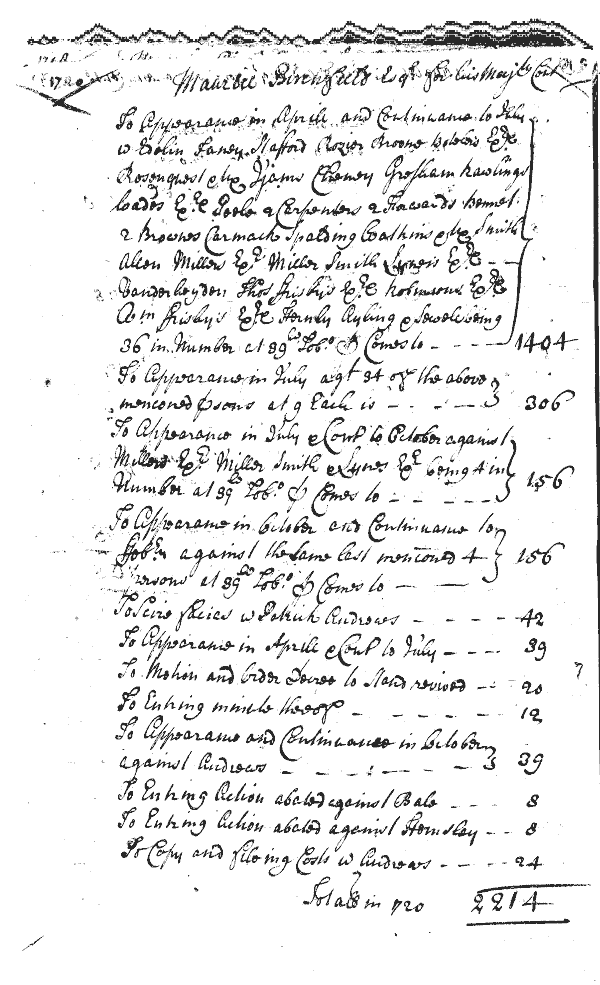 1720 Maurice Birchfield Esqr for his Majtys Cort
To Appearance in Aprill and Continuance to July
w Edolin Laney Stafford Rozier Broone Exrx
Rosenquest & ux Jjams Cheney Gresham Rawlings
Loades Exrx Poole 2 Carpenters 2 Hawards Hemet
2 Brownes Carmack Spalding Coaskins & ux Smith
Allen Millers Exrx Miller Smith Lynes Exrx
Vanderheyden Thos Frisby's Exrx Robinsons Exrx
Wm Frisby's Exrx Hernly Ayling & Sewell being
36 in Number at 39 lb Tobo ℔ Comes to - - - - 1404
To Appearance in July agt 34 of the above
mencioned ℔sons at 9 Each is - - - - 306
To Appearance in July & Cont to October against
Millers Exrx Miller Smith & Lynes Exrx being 4 in
Number at 39 lb Tobo ℔ Comes to - - - - 156
To Appearance in October and Continuance to
Febry against the same last mencioned 4
Persons at 39 lb Tobo ℔ Comes to - - 156
To Scire facias w Patrick Andrews - - - - 42
To Appearance in Aprill & Cont to July - - - 39
To Motion and Order Decree to stand revived - - 20
To Entring minute thereof - - - - - - 12
To Appearance and Continuance in October
against Andrews - - - - - - 39
To Entring Action abated against Bale - - - 8
To Entring Action abated against Hemsley - - 8
To Copy and fileing Costs w Andrews - - - - 24
Totall in 720 2214